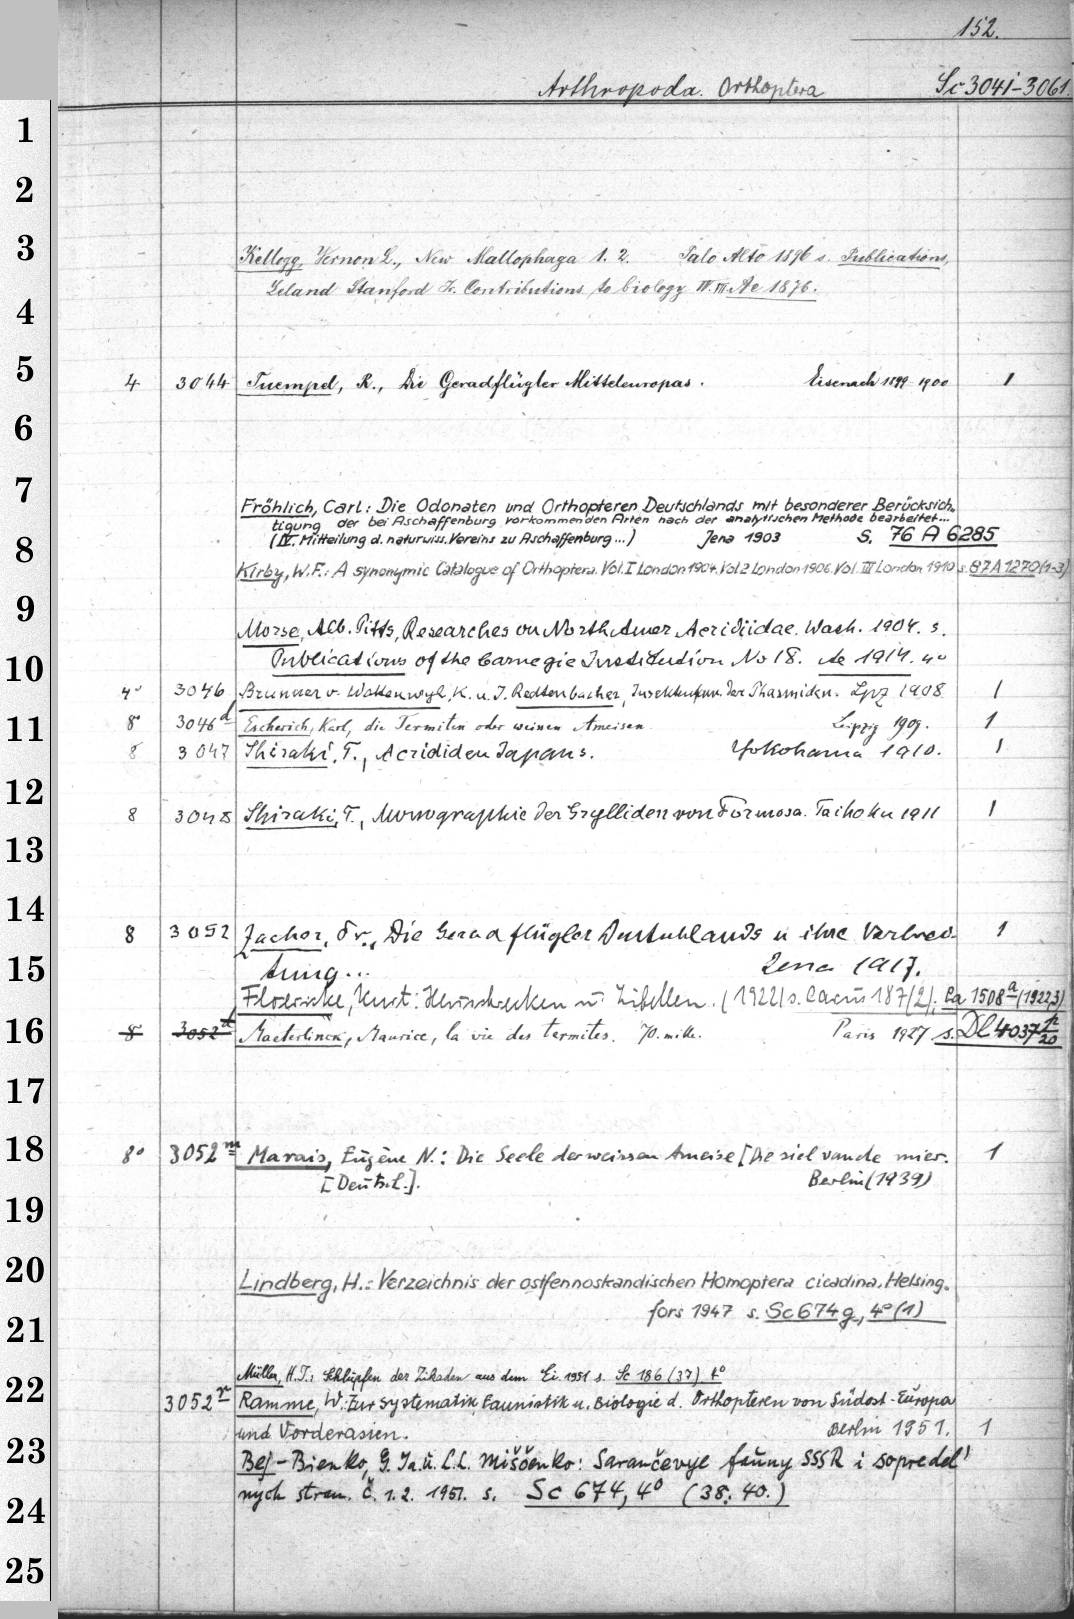 152.
Arthropoda. Orthoptera Sc 3041-3061.
1
2
3
Kellogg, Vernon L., New Mallophaga 1. 2. Palo Alto 1896 s. Publications,
Leland Stanford Jr. Contributions to biology IV. III Ae 1876.
4
5
4 3044 Tuempel, R., Die Geradflügler Mitteleuropas. Eisenach 1899-1900 1
6
7
Fröhlich, Carl: Die Odonaten und Orthopteren Deutschlands mit besonderer Berücksich-
tigung der bei Aschaffenburg vorkommenden Arten nach der analytischen Methode bearbeitet...
8
(IV. Mitteilung d. naturwiss. Vereins zu Aschaffenburg...) Jena 1903 s. 76 A 6285
Kirby, W.F.: A synonymic Catalogue of Orthoptera. Vol. I London 1904. Vol 2 London 1906. Vol. III London 1910 s. 87A1270(1-3)
9
Morse, Alb. Pitts, Researches on North Amer Acridiidae. Wash. 1904. s.
10
Publications of the Carnegie Institution No 18. Ae 1914. 4o
4o 3046 Brunner v. Wattenwyl, K. u. J. Redtenbacher, Insektenfam. der Phasmiden. Lpz 1908 1
11
8o 3046a Escherich, Karl, die Termiten oder weissen Ameisen. Leipzig 1909. 1
8 3047 Shiraki, T., Acrididen Japans. Yokohama 1910. 1
12
8 3048 Shiraki, T., Monographie der Grylliden von Formosa. Taihoku 1911 1
13
14
8 3052 Zacher, Fr., Die Geradflügler Deutschlands u ihre Verbrei-
15
tung... Jena 1917. 1
Floericke, Kurt: Heuschrecken u. Libellen. (1922) s. Lacus 187(2); La 1508a (1922,3)
16
8o 3052a Maeterlinck, Maurice, la vie des termites. 70. mille. Paris 1927 s. Dl 4037 p/20
17
18
8o 3052m Marais, Eugène N.: Die Seele der weissen Ameise [Die siel van de mier.
[Deutsch.]. Berlin (1939) 1
19
20
Lindberg, H.: Verzeichnis der ostfennoskandischen Homoptera cicadina. Helsing-
21
fors 1947 s. Sc 674 g, 4o (1)
Müller, H.J.: Schlüpfen der Zikaden aus dem Ei. 1951 s. Sc 186 (37) 4o
22
3052r Ramme, W.: Zur Systematik, Faunistik u. Biologie d. Orthopteren von Südost-Europa
und Vorderasien. Berlin 1951. 1
23
Bej-Bienko, G. Ja. u. L.L. Miščenko: Sarančevye fauny SSSR i sopredel'
24
nych stran. č. 1. 2. 1951. s. Sc 674, 4o (38. 40.)
25